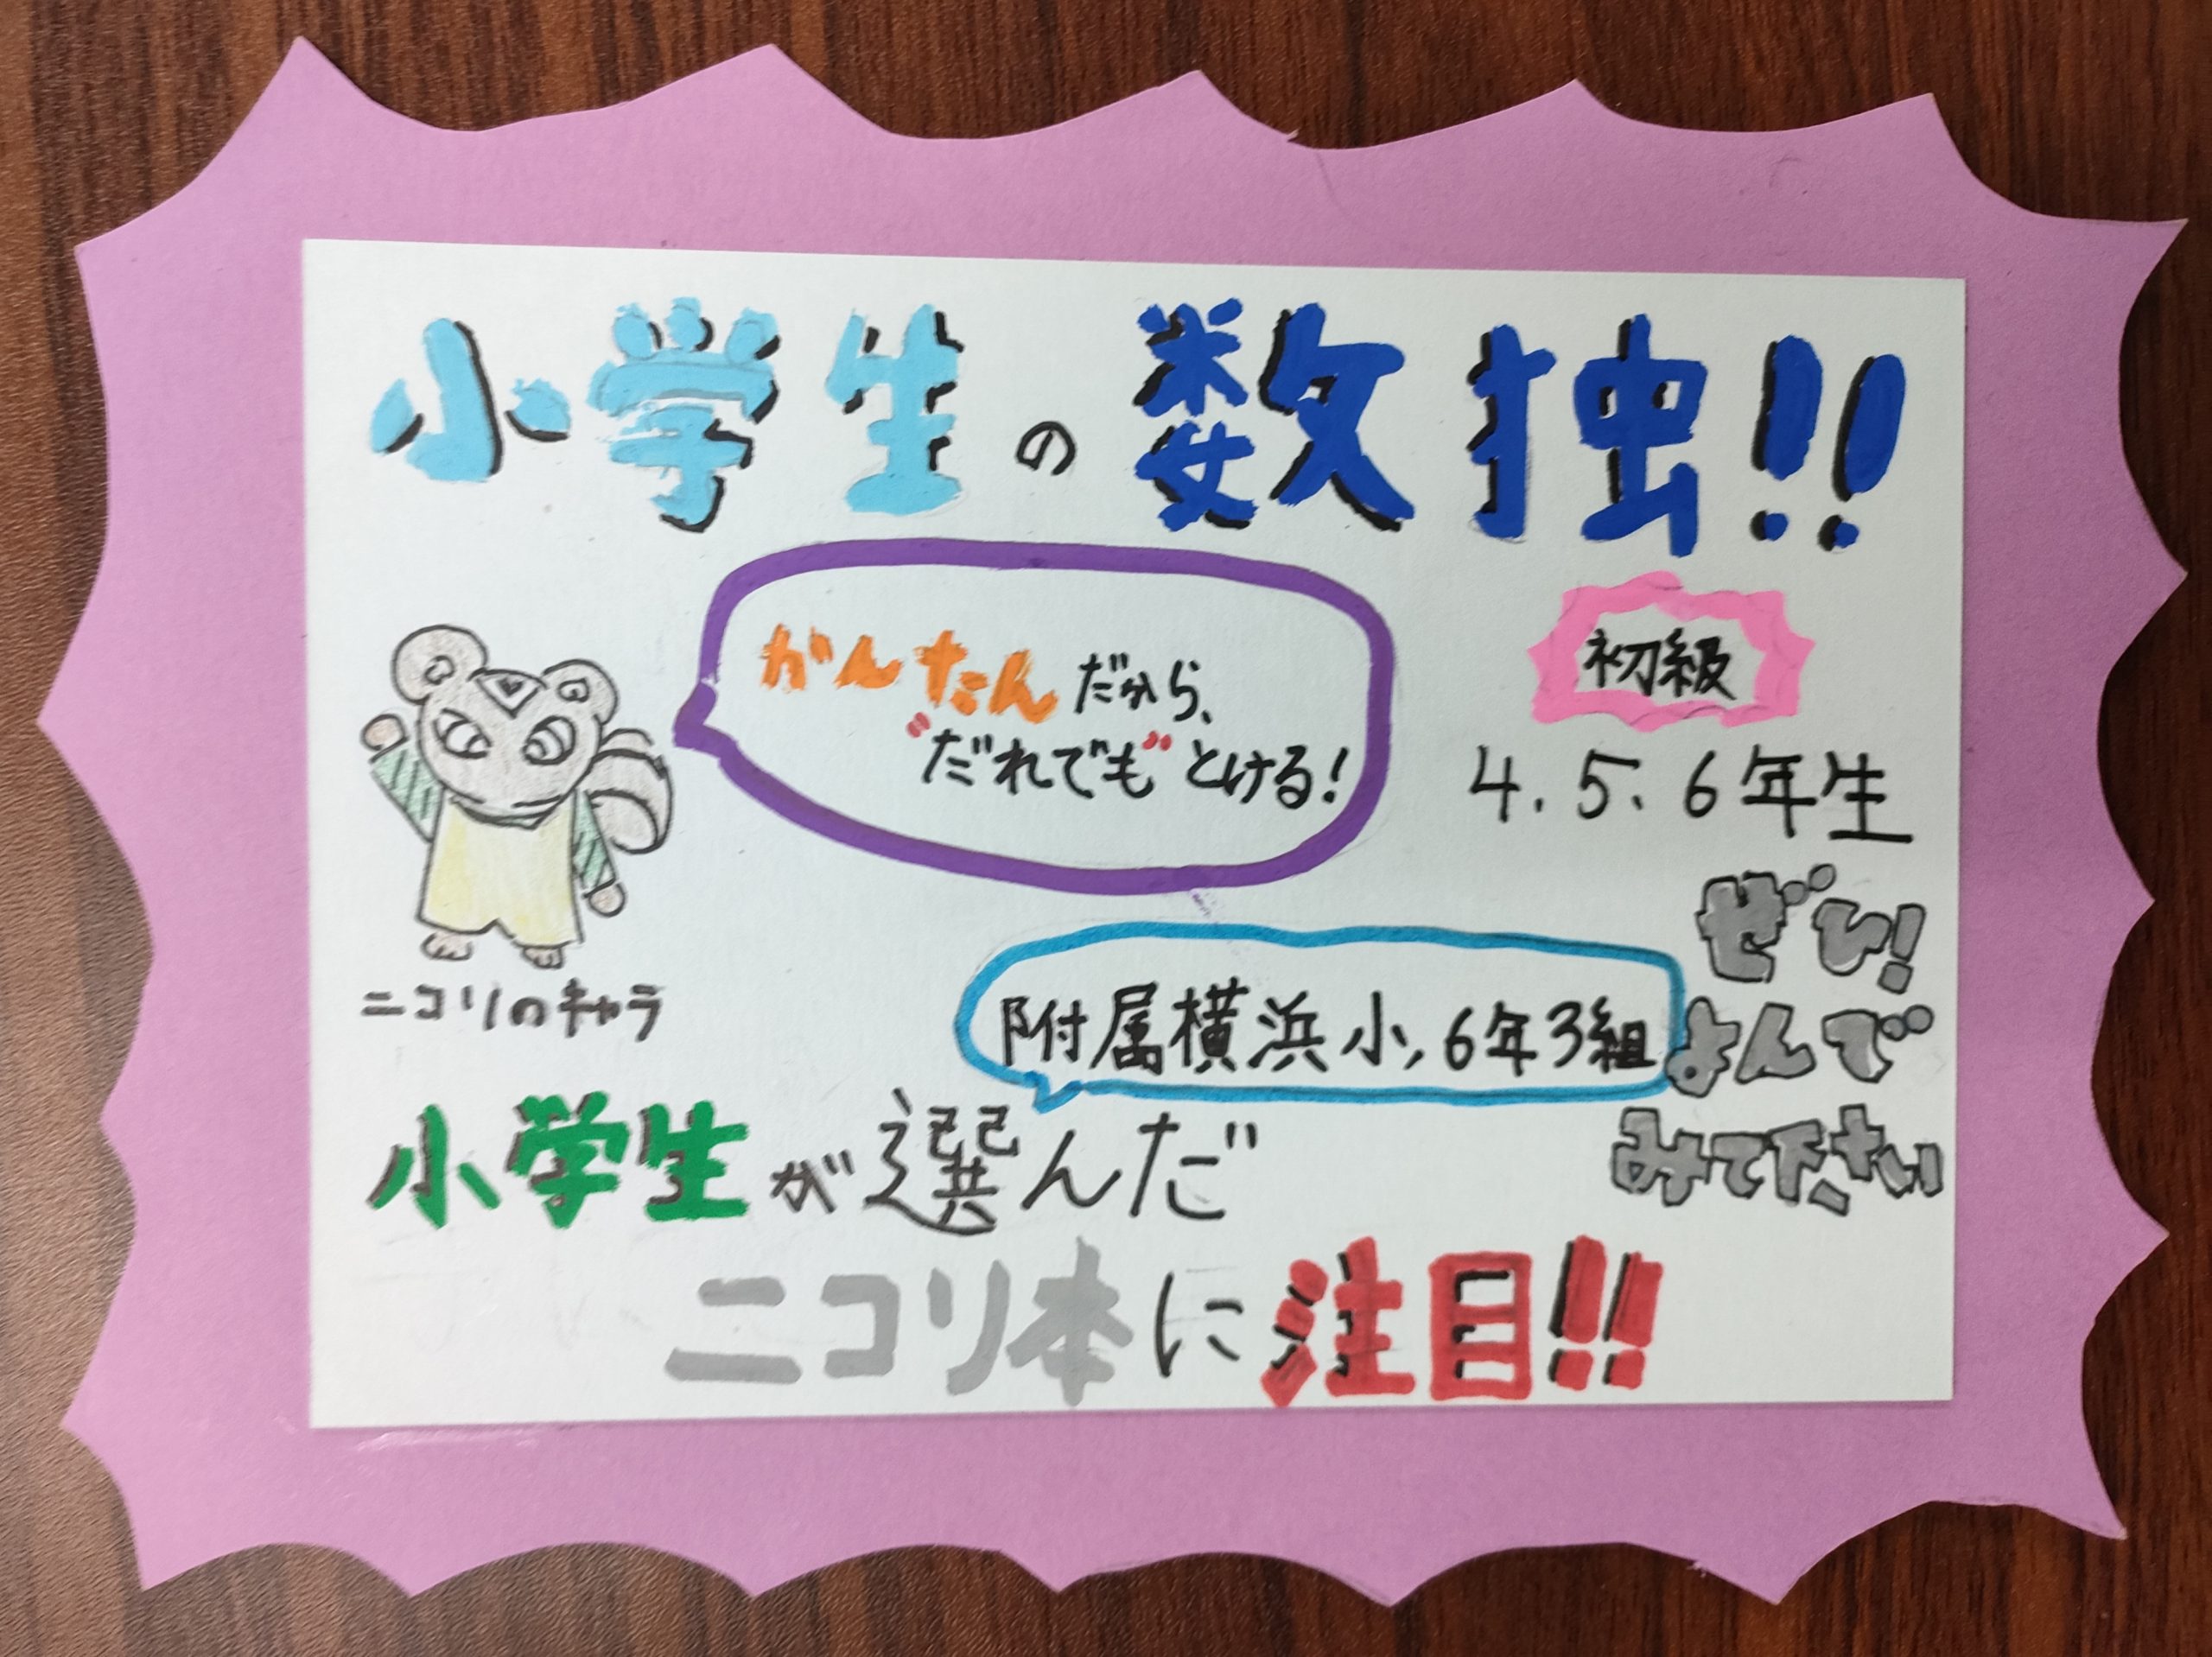 小学生の数独!!
かんたんだから、
"だれでも"とける!
初級
4.5.6年生
ぜひ!
よんで
みて下さい
ニコリのキャラ
附属横浜小,6年3組
小学生が選んだ
ニコリ本に注目!!